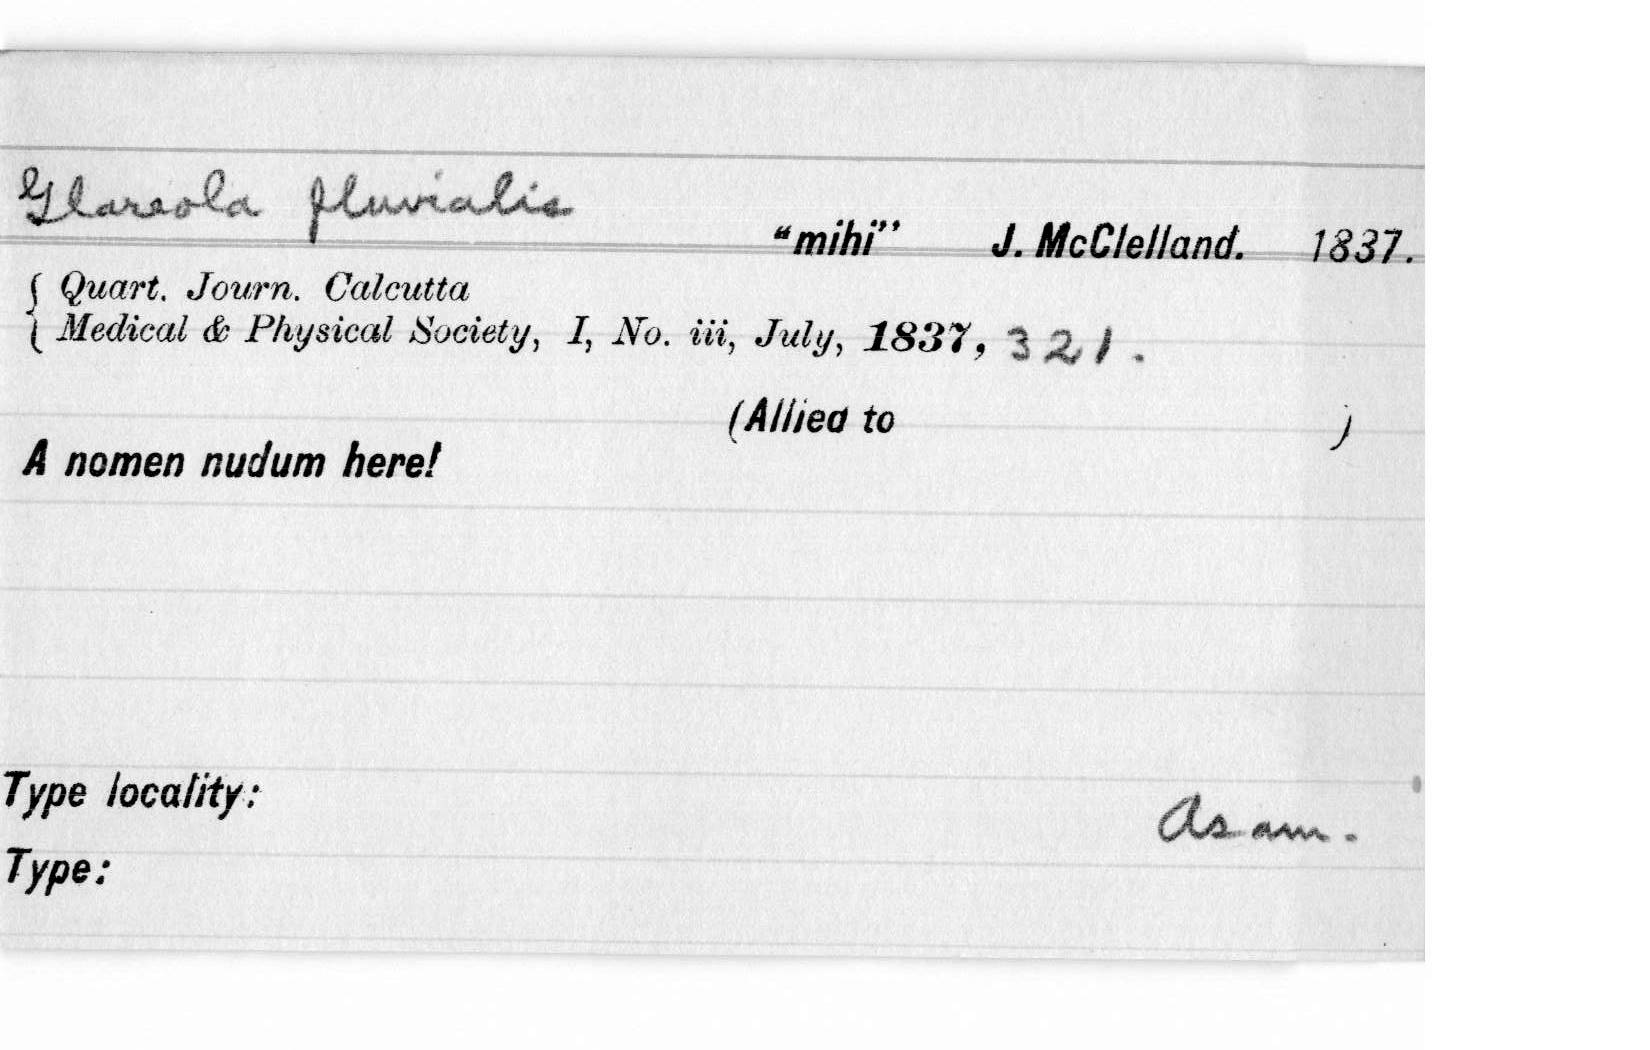 Glareola fluvialis
"mihi" J. McClelland. 1837.
Quart. Journ. Calcutta
Medical & Physical Society, I, No. iii, July, 1837, 321.
(Allied to )
A nomen nudum here!
Type locality:
Asam.
Type: